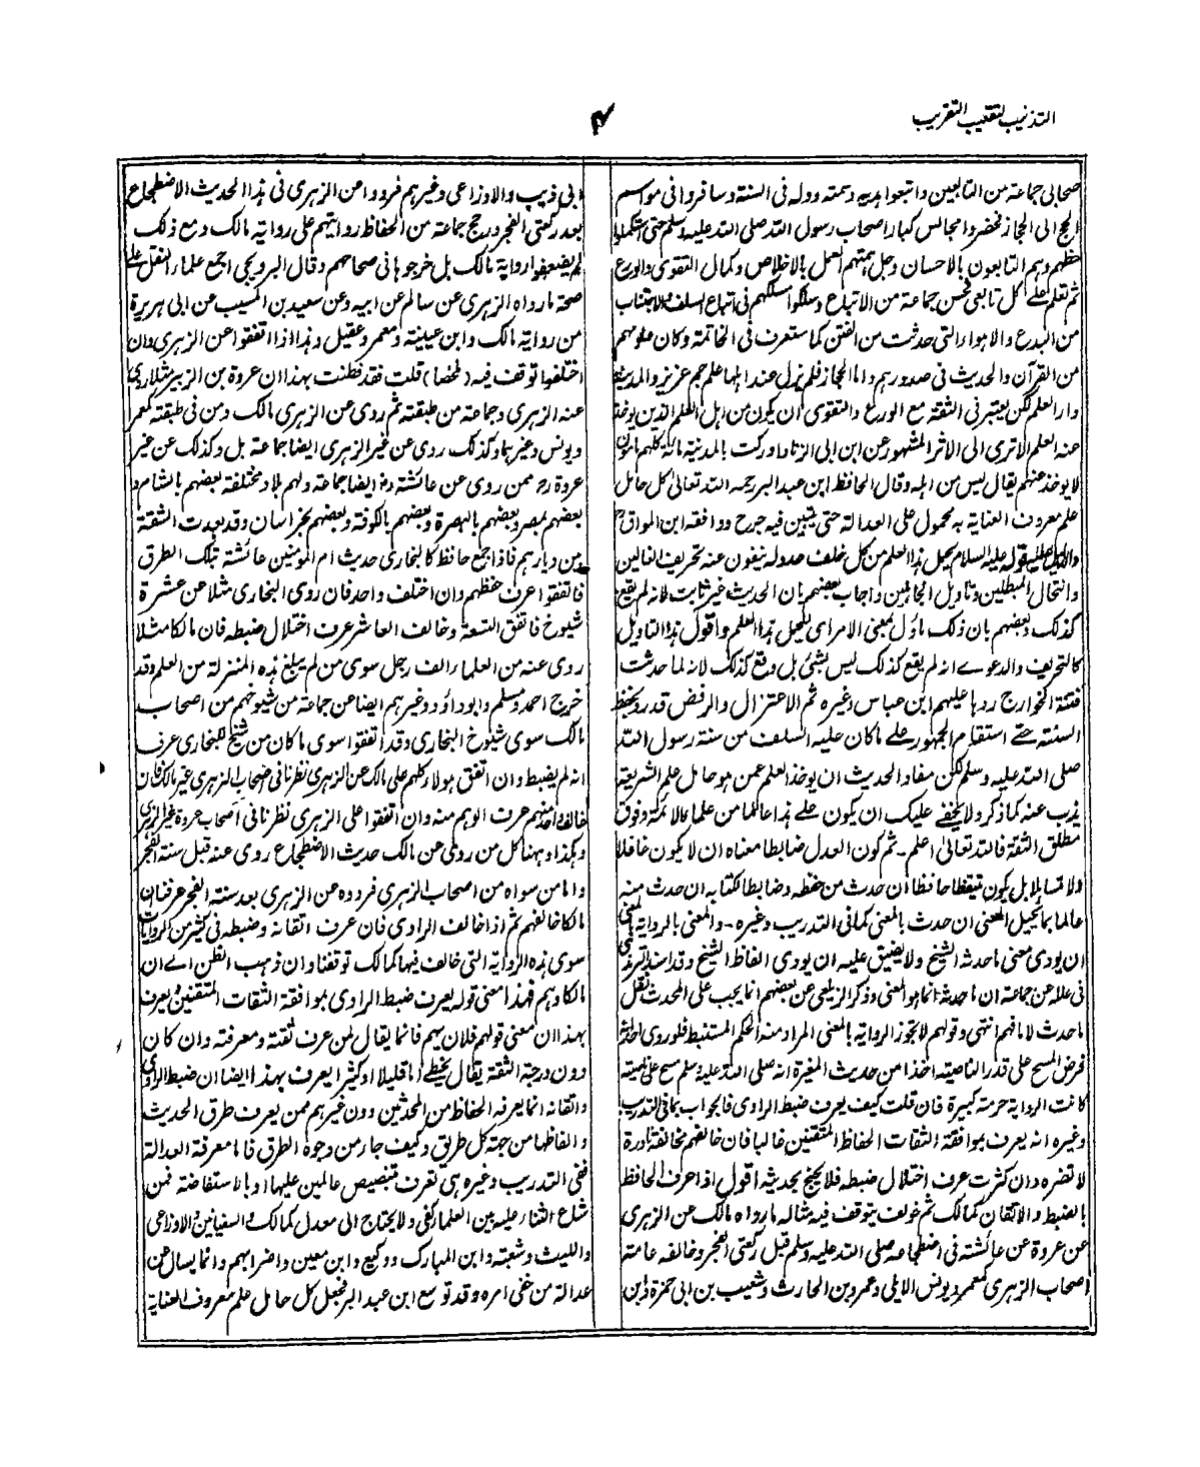 التذنيب لتعقيب التقريب
۴
صحابى جماعة من التابعين واتبعوا هديه وسمته ودله فى السنة وسافروا فى مواسم
الحج الى الحجاز فحضروا مجالس كبار اصحاب رسول الله صلى الله عليه وسلم حتى استكملوا
حظهم وهم التابعون بالاحسان وجل همتهم العمل بالاخلاص وكمال التقوى والورع
ثم تعلم على كل تابعى محسن جماعة من الاتباع وسلكوا مسلكهم فى اتباع السلف والاجتناب
من البدع والاهواء التى حدثت من الفتن كما ستعرف فى الخاتمة وكان علومهم
من القرآن والحديث فى صدورهم واما الحجاز فلم يزل عند اهلها علم جم عزيز والمدينة
دار العلم لكن يعتبر فى الثقة مع الورع والتقوى ان يكون من اهل العلم الذين يوخذ
عنه العلم الا ترى الى الاثر المشهور عن ابن ابى الزناد ادركت بالمدينة مائة كلهم مامون
لا يوخذ عنهم يقال ليس من اهله وقال الحافظ ابن عبد البر رحمه الله تعالى كل حامل
علم معروف العناية به محمول على العدالة حتى يتبين فيه جرح ووافقه ابن المواق
قوله عليه السلام يحمل هذا العلم من كل خلف عدوله ينفون عنه تحريف الغالين
وانتحال المبطلين وتاويل الجاهلين واجاب بعضهم بان الحديث غير ثابت لانه لم يقع
كذلك وبعضهم بان ذلك ماول بمعنى الامر اى ليحمل هذا العلم واقول هذا التاويل
كالتحريف والدعوے انه لم يقع كذلك ليس بشئى بل وقع كذلك لانه لما حدثت
فتنة الخوارج ردها عليهم ابن عباس وغيره ثم الاعتزال والرفض قد رد بحفظ
السنة حتے استقام الجمهور علے ما كان عليه السلف من سنة رسول الله
صلى الله عليه وسلم لكن مفاد الحديث ان يوخذ العلم عمن هو حامل علم الشريعة
يذب عنه كما ذكر ولا يخفے عليك ان يكون علے هذا عالما من علما كالائمة وفوق
مطلق الثقة فالله تعالى اعلم - ثم كون العدل ضابطا معناه ان لا يكون غافلا
ولا متساهلا بل يكون متيقظا حافظا ان حدث من حفظه وضابطا لكتابه ان حدث منه
عالما بما يحيل المعنى ان حدث بالمعنى كما فى التدريب وغيره - والمعنى بالرواية بالمعنى
ان يودى معنى ما حدثه الشيخ ولا يضيق عليه ان يودى الفاظ الشيخ وقد اسند الترمذى
فى علله عن جماعة ان ما حدثه انما هو المعنى وذكر الزيلعى عن بعضهم انما يجب على المحدث نقل
ما حدث لا ما فهم انتهى وقولهم لا تجوز الرواية بالمعنى المراد منه الحكم المستنبط فلو روى احد
فرض المسح على قدر الناصية اخذا من حديث المغيرة انه صلى الله عليه وسلم مسح على ناصيته
كانت الرواية حرمته كبيرة فان قلت كيف يعرف ضبط الراوى فالجواب بما فى التدريب
وغيره انه يعرف بموافقة الثقات الحفاظ المتقنين غالبا فان خالفهم مخالفة نادرة
لا تضره وان كثرت عرف اختلال ضبطه فلا يحتج بحديثه اقول اذا عرف الحافظ
بالضبط والاتقان كمالك ثم خولف يتوقف فيه مثاله ما رواه مالك عن الزهرى
عن عروة عن عائشة فى اضطجاعه صلى الله عليه وسلم قبل ركعتى الفجر وخالفه عامة
اصحاب الزهرى كمعمر ويونس الايلى وعمرو بن الحارث وشعيب بن ابى حمزة وابن
ابى ذيب والاوزاعى وغيرهم فرووا من الزهرى فى هذا الحديث الاضطجاع
بعد ركعتى الفجر ورجح جماعة من الحفاظ روايتهم على رواية مالك ومع ذلك
لم يضعفوا رواية مالك بل خرجوها فى صحاحهم وقال البرديجى اجمع علماء النقل على
صحة ما رواه الزهرى عن سالم عن ابيه وعن سعيد بن المسيب عن ابى هريرة
من رواية مالك وابن عيينة ومعمر وعقيل وهذا اذا اتفقوا عن الزهرى وان
اختلفوا توقف فيه (ملخصا) قلت فقد فطنت بهذا ان عروة بن الزبير مثلا روى
عنه الزهرى وجماعة من طبقته ثم روى عن الزهرى مالك ومن فى طبقته كمعمر
ويونس وغيرهما وكذلك روى عن غير الزهرى ايضا جماعة بل وكذلك عن غير
عروة رح ممن روى عن عائشة رض ايضا جماعة ولهم بلاد مختلفة بعضهم بالشام و
بعضهم بمصر وبعضهم بالبصرة وبعضهم بالكوفة وبعضهم بخراسان وقد بعدت الشقة
بين ديارهم فاذا جمع حافظ كالبخارى حديث ام المومنين عائشة بتلك الطرق
فاتفقوا عرف حفظهم وان اختلف واحد فان روى البخارى مثلا عن عشرة
شيوخ فاتفق التسعة وخالف العاشر عرف اختلال ضبطه فان مالكا مثلا
روى عنه من العلماء الف رجل سوى من لم يبلغ هذه المنزلة من العلم وقد
خرج احمد ومسلم وابو داؤد وغيرهم ايضا عن جماعة من شيوخهم من اصحاب
مالك سوى شيوخ البخارى وقد اتفقوا سوى ما كان من شيخ للبخارى عرف
انه لم يضبط وان اتفق هولاء كلهم على مالك عن الزهرى نظرنا فى اصحاب الزهرى غير مالك فان
خالف واحد منهم عرف الوهم منه وان اتفقوا على الزهرى نظرنا فى اصحاب عروة غير الزهرى
وهكذا وههنا كل من روى عن مالك حديث الاضطجاع روى عنه قبل سنة الفجر
واما من سواه من اصحاب الزهرى فرووه عن الزهرى بعد سنة الفجر عرفنا ان
مالكا خالفهم ثم اذا خالف الراوى فان عرف اتقانه وضبطه فى كثير من الروايات
سوى هذه الرواية التى خالف فيها كمالك توقفنا وان ذهب الظن اے ان
مالكا وهم فهذا معنى قوله يعرف ضبط الراوى بموافقة الثقات المتقنين ويعرف
بهذا ان معنى قولهم فلان يهم فانما يقال لمن عرف ثقته ومعرفته وان كان
دون درجة الثقة يقال يخطے اما قليلا او كثيرا يعرف بهذا ايضا ان ضبط الراوى
واتقانه انما يعرفه الحفاظ من المحدثين دون غيرهم ممن يعرف طرق الحديث
والفاظها من جهة كل طريق وكيف جاء من وجوه الطرق فاما معرفة العدالة
ففى التدريب وغيره هى تعرف بتنصيص عالمين عليها او بالاستفاضة فمن
شاع الثناء عليه بين العلماء كفى ولا يحتاج الى معدل كمالك والسفيانين والاوزاعى
والليث وشعبة وابن المبارك ووكيع وابن معين واضرابهم وانما يسال عن
عدالة من خفى امره وقد توسع ابن عبد البر فجعل كل حامل علم معروف العناية